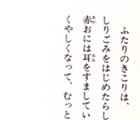 ふたりのきこりは、
しりごみをはじめたらし
赤おには耳をすましてい
くやしくなって、むっと